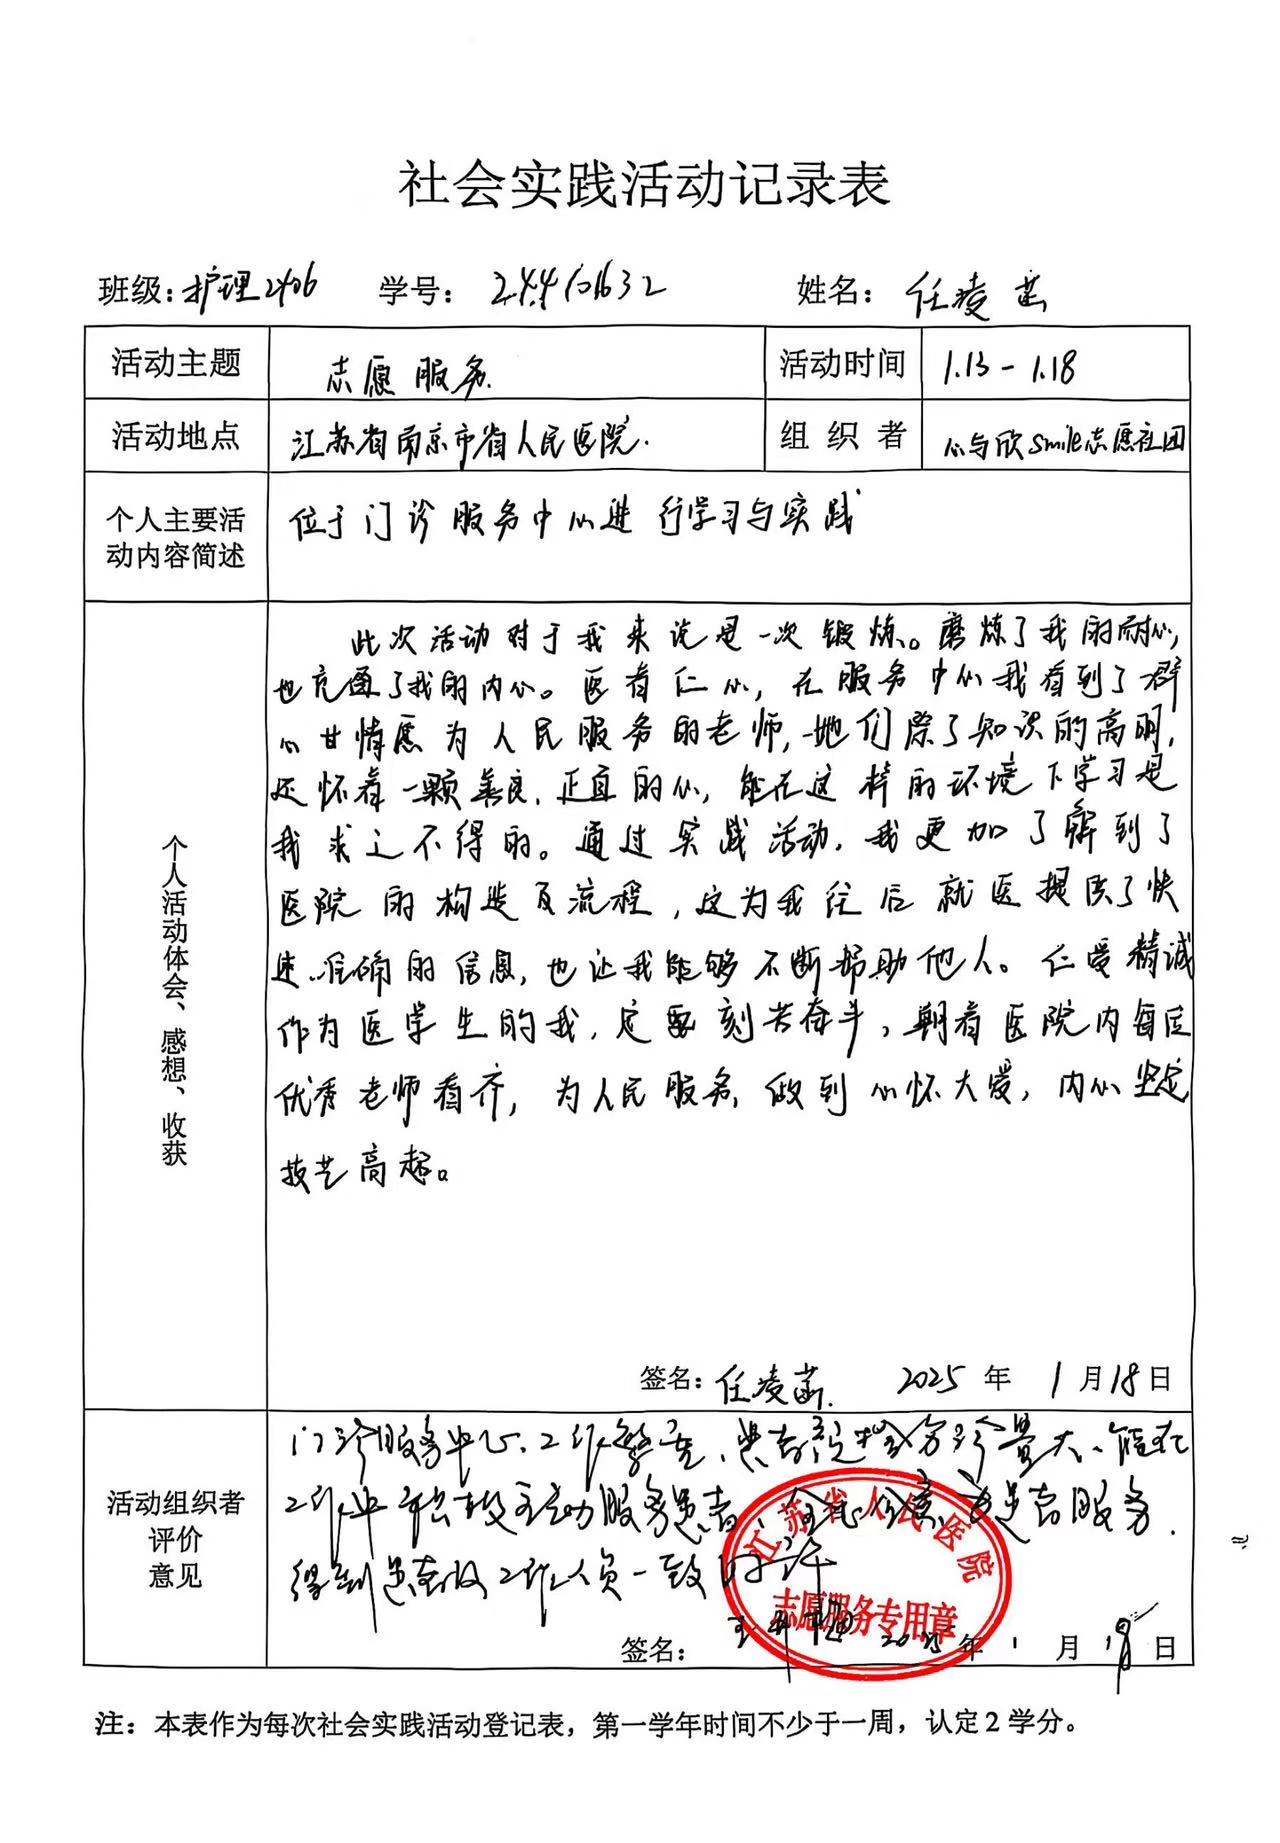 社会实践活动记录表
班级：护理2406 学号：24410632 姓名：任凌茁
活动主题 志愿服务. 活动时间 1.13-1.18
活动地点 江苏省南京市省人民医院. 组织者 心与欣smile志愿社团
个人主要活动内容简述 位于门诊服务中心进行学习与实践
个人活动体会、感想、收获
此次活动对于我来说是一次锻炼。磨炼了我的耐心,
也充盈了我的内心。医者仁心，在服务中心我看到了群
心甘情愿为人民服务的老师,她们除了知识的高明,
还怀着一颗善良、正直的心，能在这样的环境下学习是
我求之不得的。通过实践活动，我更加了解到了
医院的构造及流程，这为我往后就医提供了快
速、准确的信息，也让我能够不断帮助他人。仁爱精诚
作为医学生的我，定要刻苦奋斗，朝着医院内每位
优秀老师看齐，为人民服务，做到心怀大爱，内心坚定
技艺高超。
签名：任凌茁. 2025年1月18日
活动组织者
评价
意见
门诊服务中心，工作繁重，患者分诊量大、能在
工作中积极主动服务患者，全心全意为患者服务.
得到患者及工作人员一致好评
江苏省人民医院
志愿服务专用章
签名： 2025年1月18日
注：本表作为每次社会实践活动登记表，第一学年时间不少于一周，认定2学分。